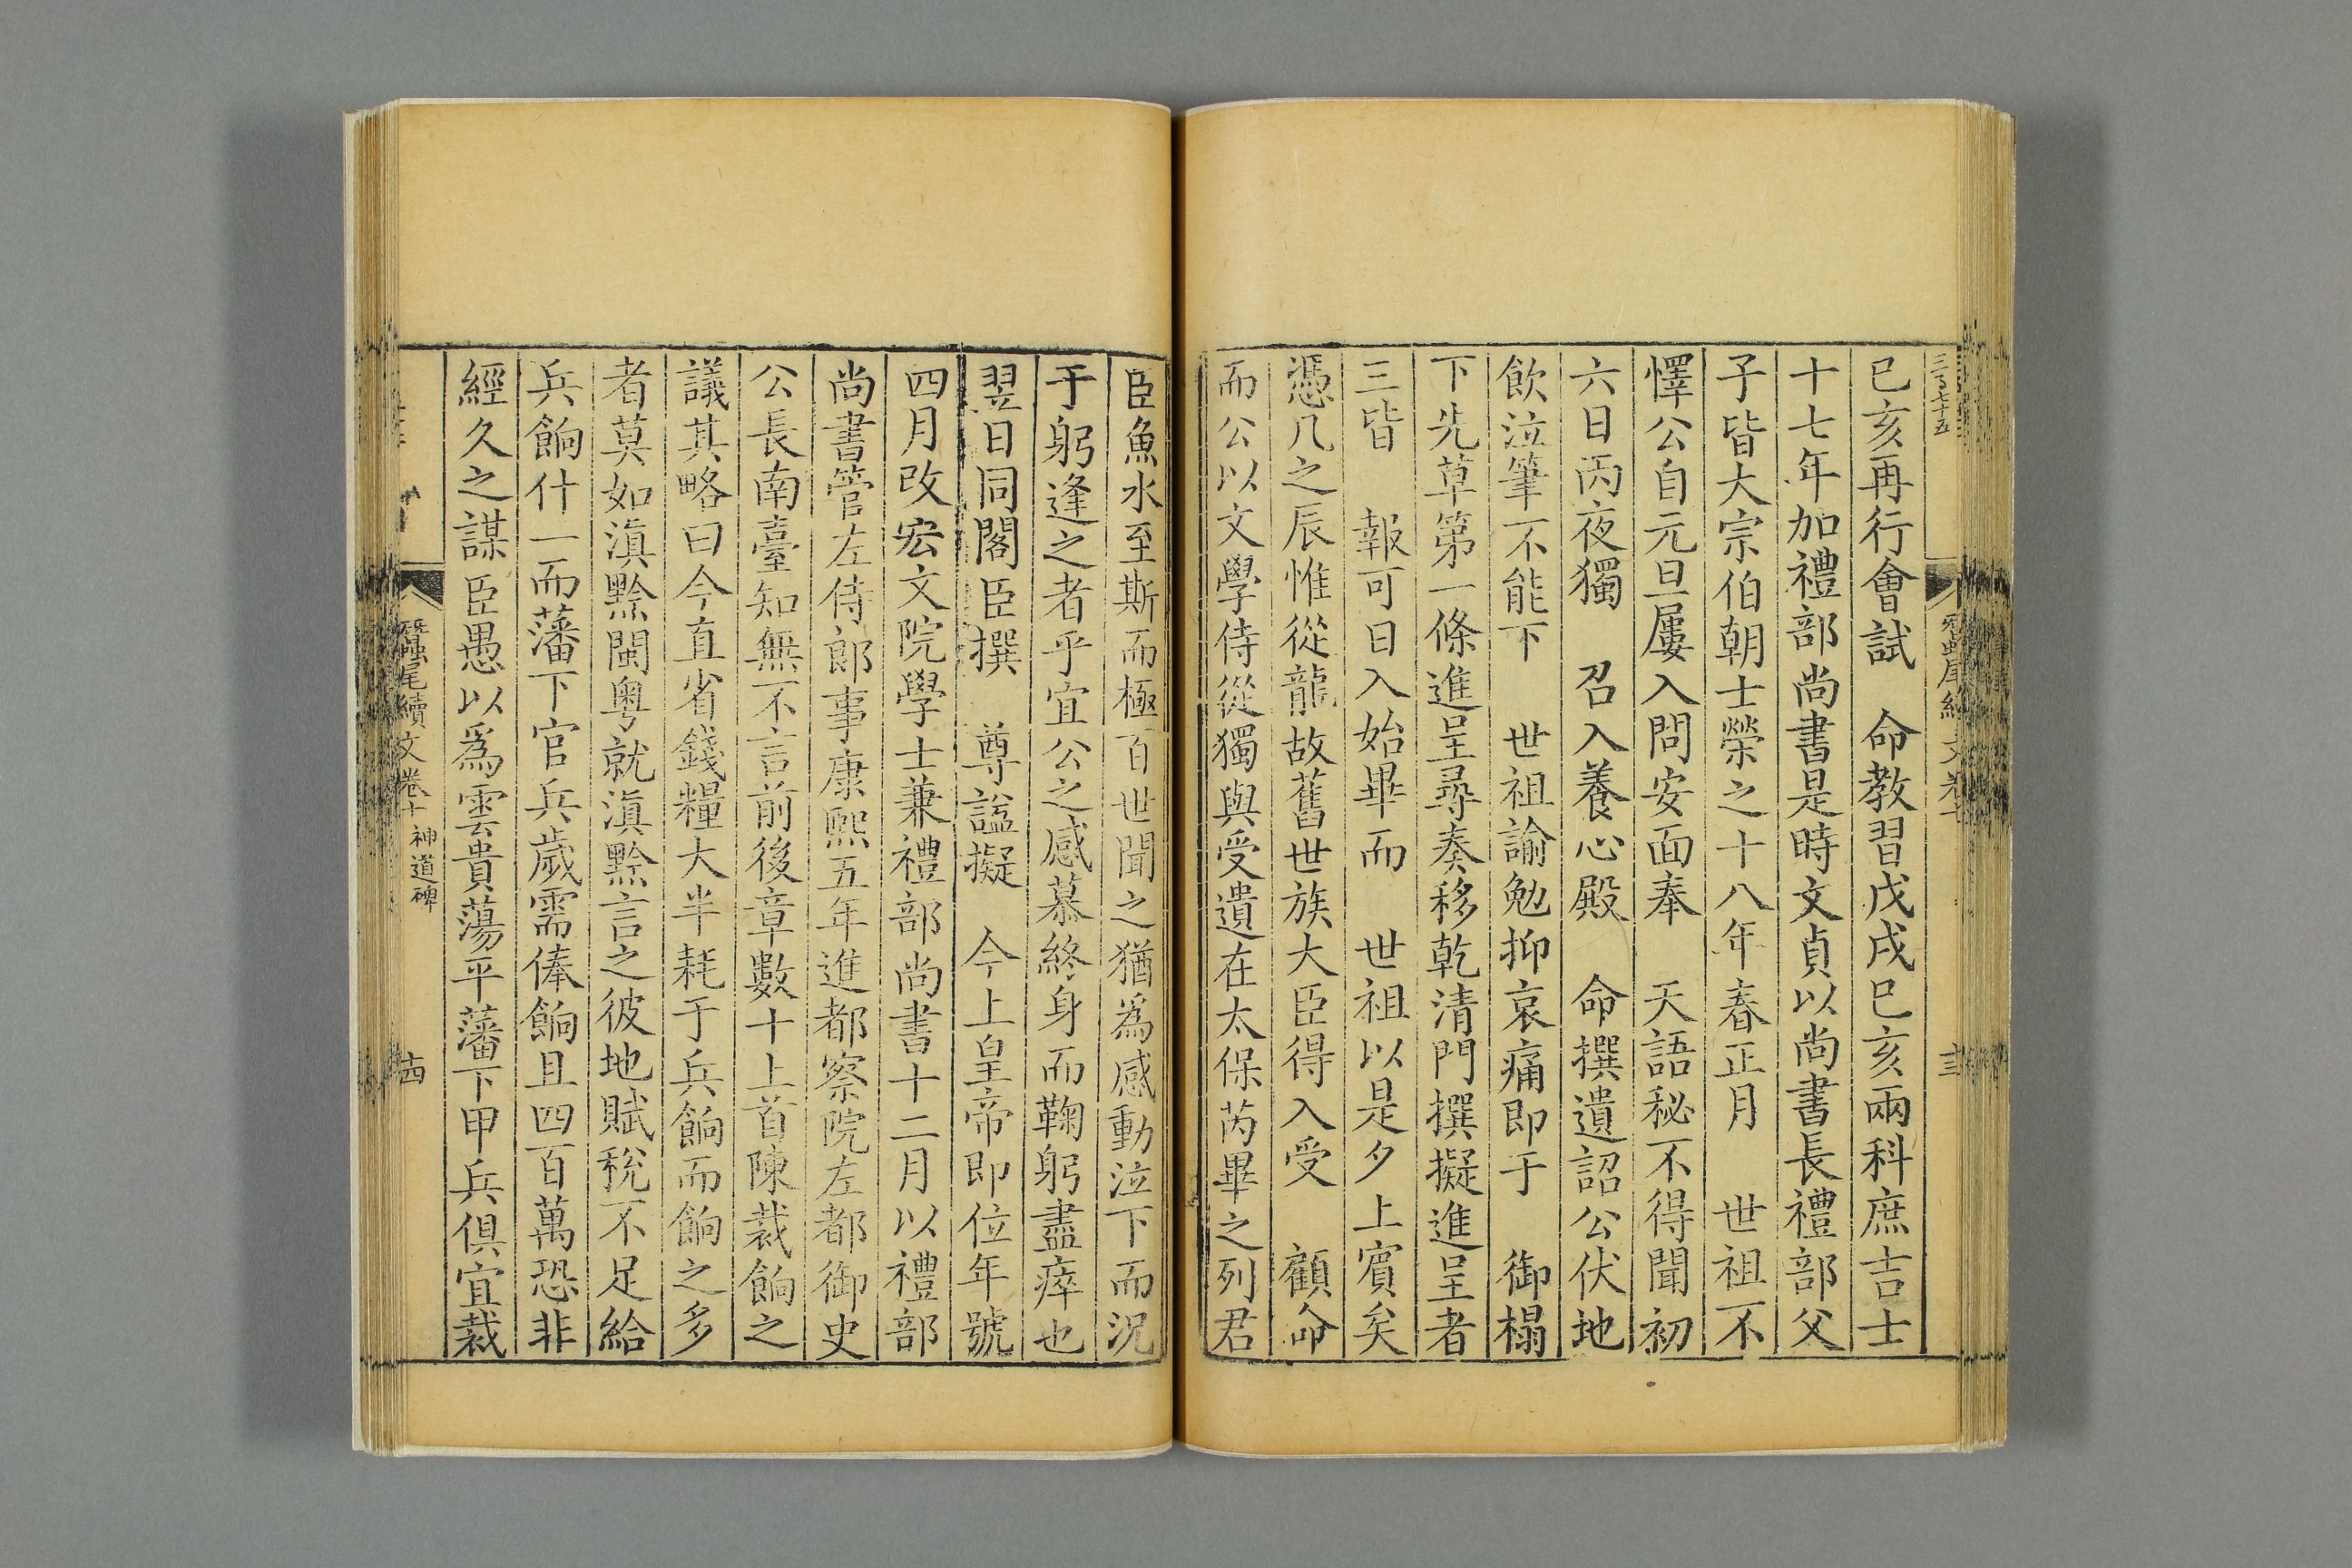 巳亥再行會試　命教習戊戌巳亥兩科庶吉士
十七年加禮部尚書是時文貞以尚書長禮部父
子皆大宗伯朝士榮之十八年春正月　世祖不
懌公自元旦屢入問安面奉　天語秘不得聞初
六日丙夜獨　召入養心殿　命撰遺詔公伏地
飲泣筆不能下　世祖諭勉抑哀痛即于　御榻
下先草第一條進呈尋奏移乾清門撰擬進呈者
三皆　報可日入始畢而　世祖以是夕上賓矣
憑几之辰惟從龍故舊世族大臣得入受　顧命
而公以文學侍從獨與受遺在太保芮畢之列君
臣魚水至斯而極百世聞之猶為感動泣下而況
于躬逢之者乎宜公之感慕終身而鞠躬盡瘁也
翌日同閣臣撰　尊諡擬　今上皇帝即位年號
四月改宏文院學士兼禮部尚書十二月以禮部
尚書管左侍郎事康熙五年進都察院左都御史
公長南臺知無不言前後章數十上首陳裁餉之
議其略曰今直省錢糧大半耗于兵餉而餉之多
者莫如滇黔閩粵就滇黔言之彼地賦稅不足給
兵餉什一而藩下官兵歲需俸餉且四百萬恐非
經久之謀臣愚以為雲貴蕩平藩下甲兵俱宜裁
蠶尾續文卷十 神道碑
十四